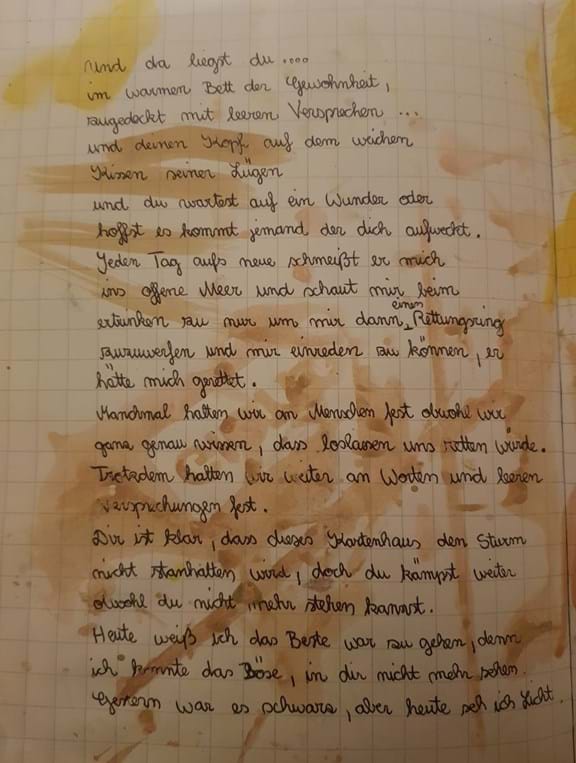 und da liegst du ....
im warmen Bett der Gewohnheit,
zugedeckt mit leeren Versprechen ...
und deinen Kopf auf dem weichen
Kissen seiner Lügen
und du wartest auf ein Wunder oder
hoffst es kommt jemand der dich aufweckt.
Jeden Tag aufs neue schmeißt er mich
ins offene Meer und schaut mir beim
ertrinken zu nur um mir dann einen Rettungsring
zuzuwerfen und mir einreden zu können, er
hätte mich gerettet.
Manchmal halten wir an Menschen fest obwohl wir
ganz genau wissen, dass loslassen uns retten würde.
Trotzdem halten wir weiter an Worten und leeren
Versprechungen fest.
Dir ist klar, dass dieses Kartenhaus den Sturm
nicht stanhalten wird, doch du kämpst weiter
obwohl du nicht mehr stehen kannst.
Heute weiß ich das Beste war zu gehen, denn
ich konnte das Böse, in dir nicht mehr sehen.
Gestern war es schwarz, aber heute seh ich Licht.